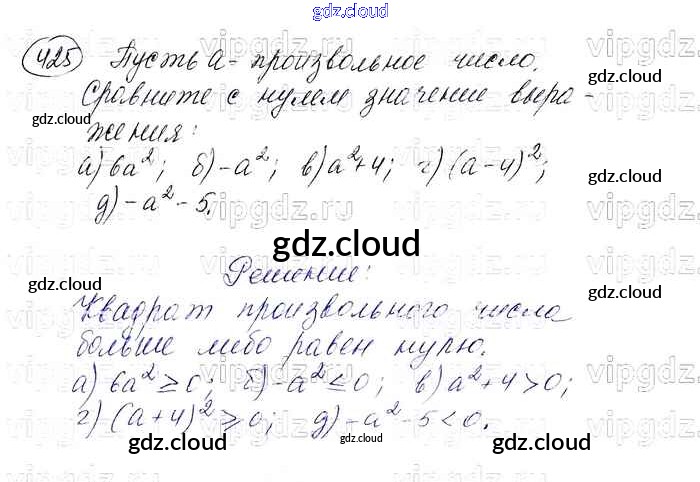 gdz.cloud
425 Пусть a - произвольное число.
Сравните с нулем значение выра-
жения:
а) 6a²; б) -a²; в) a²+4; г) (a-4)²;
д) -a²-5.
gdz.cloud
Решение:
Квадрат произвольного числа
больше либо равен нулю.
а) 6a² ≥ 0; б) -a² ≤ 0; в) a²+4 > 0;
г) (a+4)² ≥ 0; д) -a²-5 < 0.
gdz.cloud
gdz.cloud
gdz.cloud
gdz.cloud
gdz.cloud
gdz.cloud
gdz.cloud
gdz.cloud